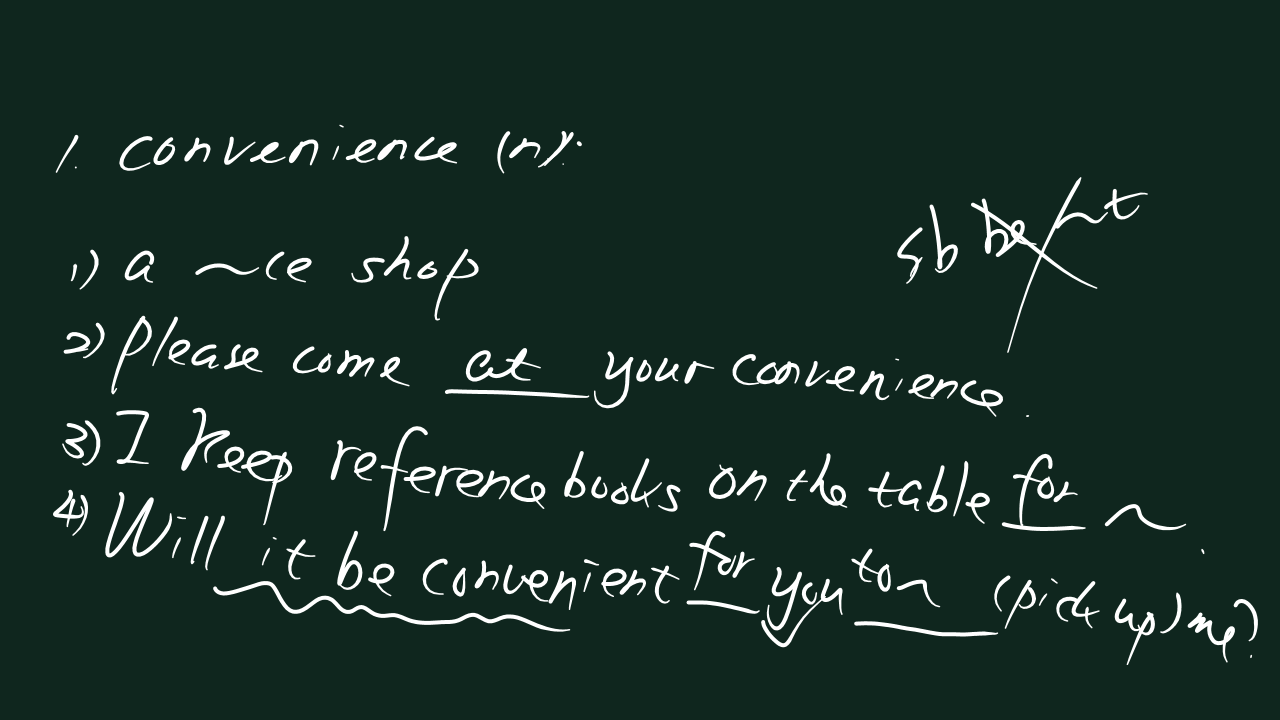 1. convenience (n).
sb be ~t
1) a ~ce shop
2) Please come at your convenience.
3) I keep reference books on the table for ~.
4) Will it be convenient for you to ~ (pick up) me?